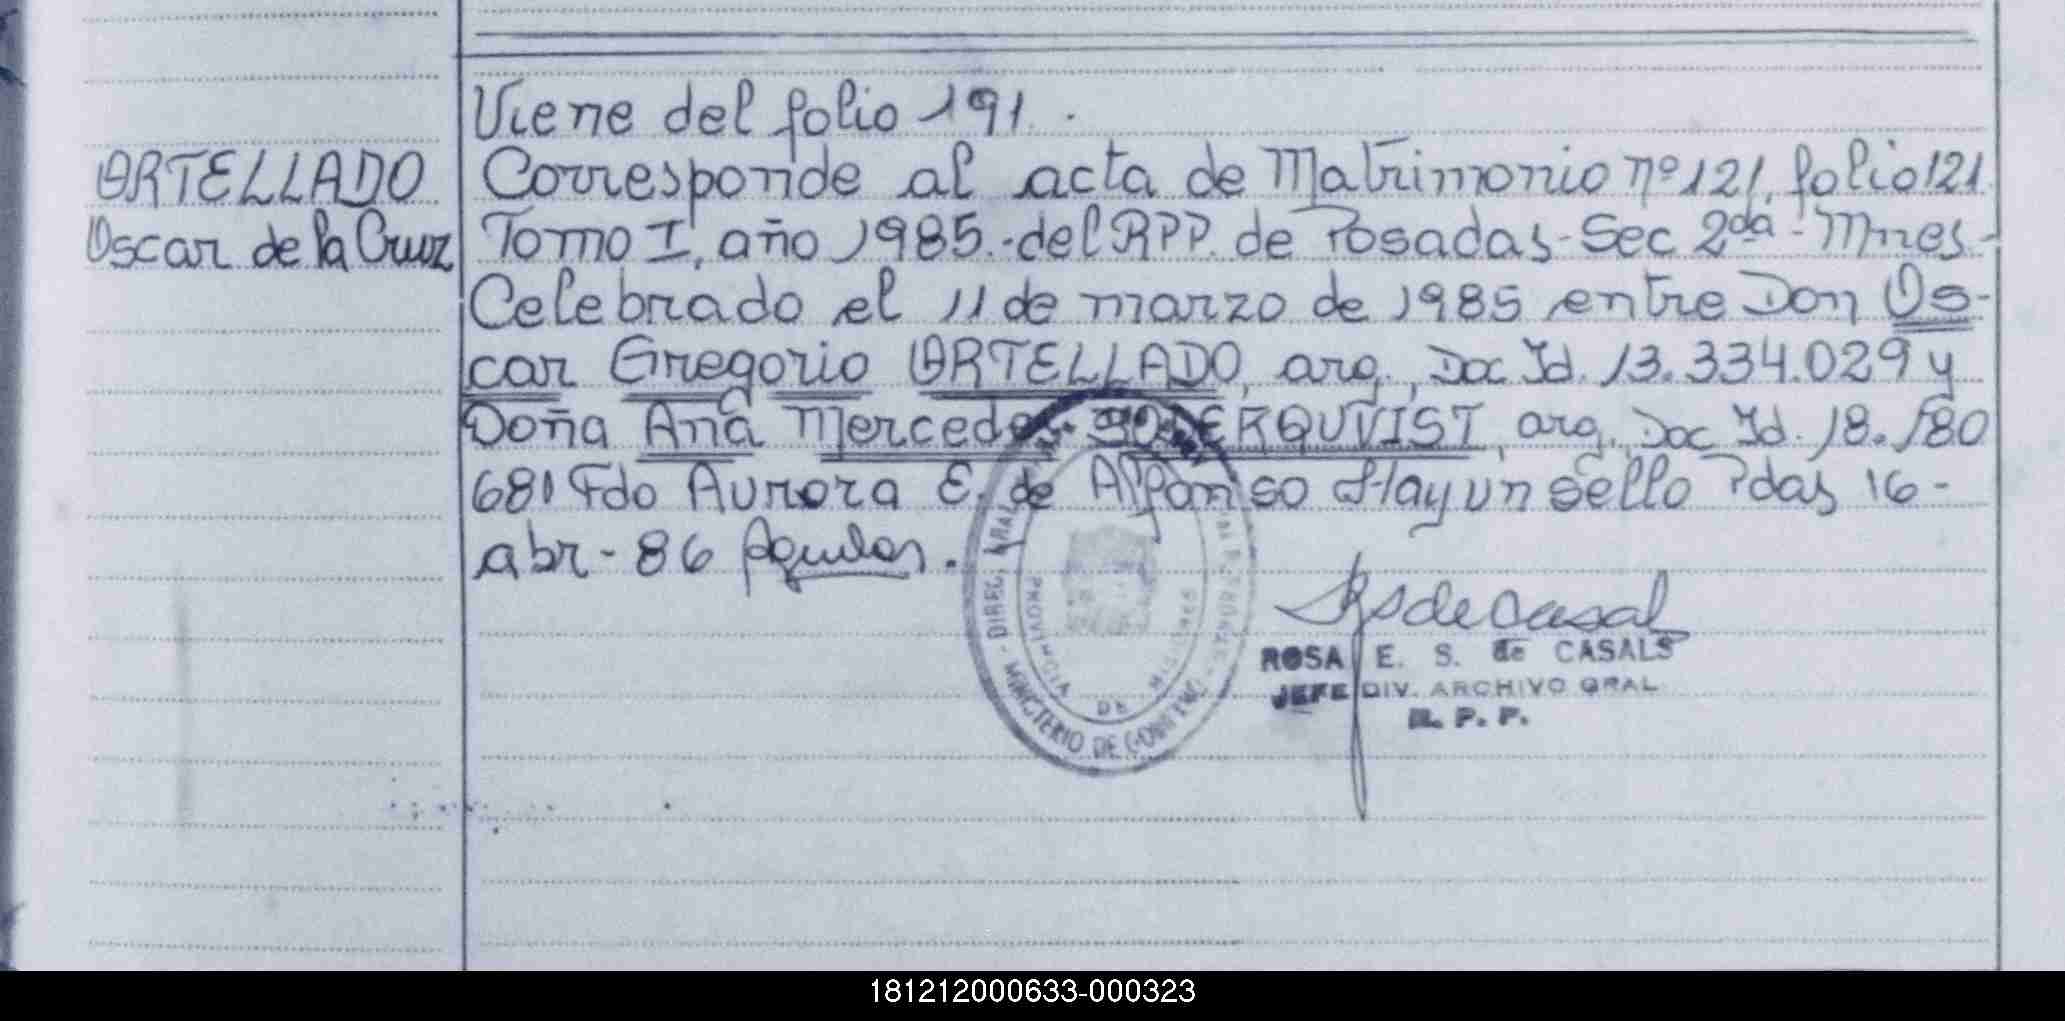 Viene del folio 191.
ARTELLADO
Oscar de la Cruz
Corresponde al acta de Matrimonio nº 121, folio 121
Tomo I, año 1985.-del RPP. de Posadas-Sec 2da-Mnes-
Celebrado el 11 de marzo de 1985 entre Don Os-
car Gregorio ARTELLADO, arg., Doc Id. 13.334.029 y
Doña Ana Mercedes SODERQUVIST, arg. Doc Id. 18.180
681 Fdo Aurora E. de Alfonso Hay un sello Pdas 16-
abr-86
DIREC. GRAL.
PROVINCIA DE MISIONES
MINISTERIO DE GOBIERNO
RSdeCasals
ROSA E. S. de CASALS
JEFE DIV. ARCHIVO GRAL.
R. P. P.
181212000633-000323